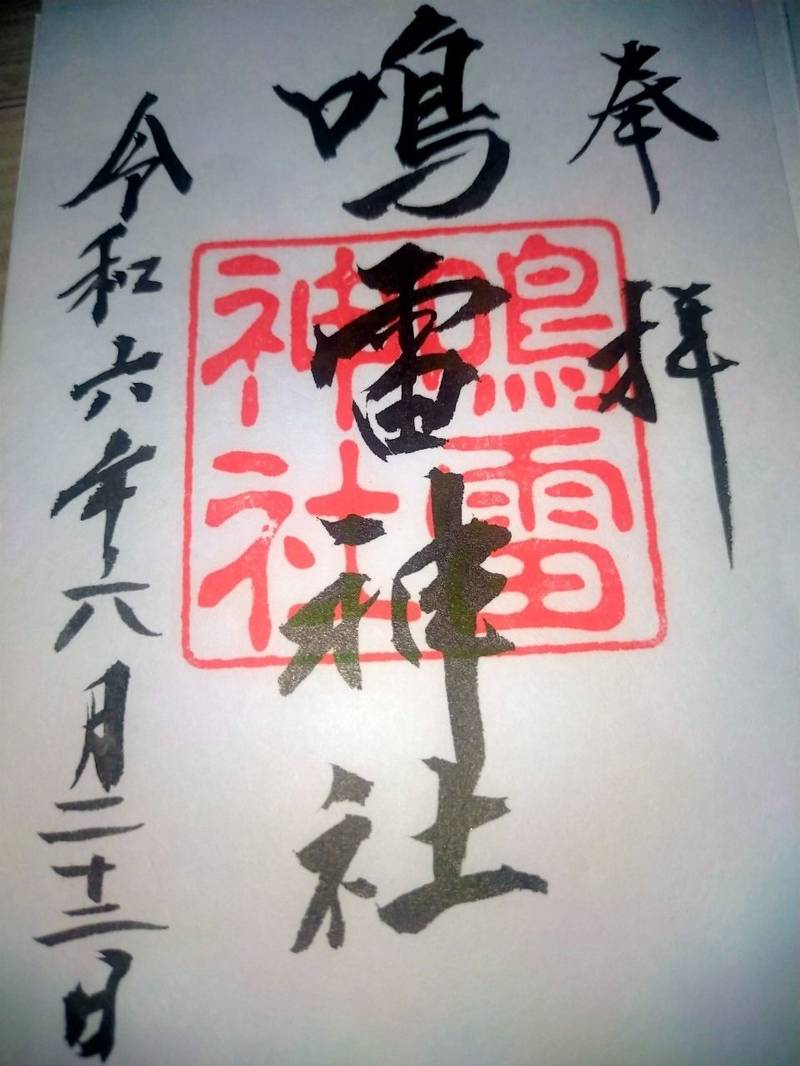 奉拝
鳴雷神社
鳴雷
神社
令和六年六月二十二日